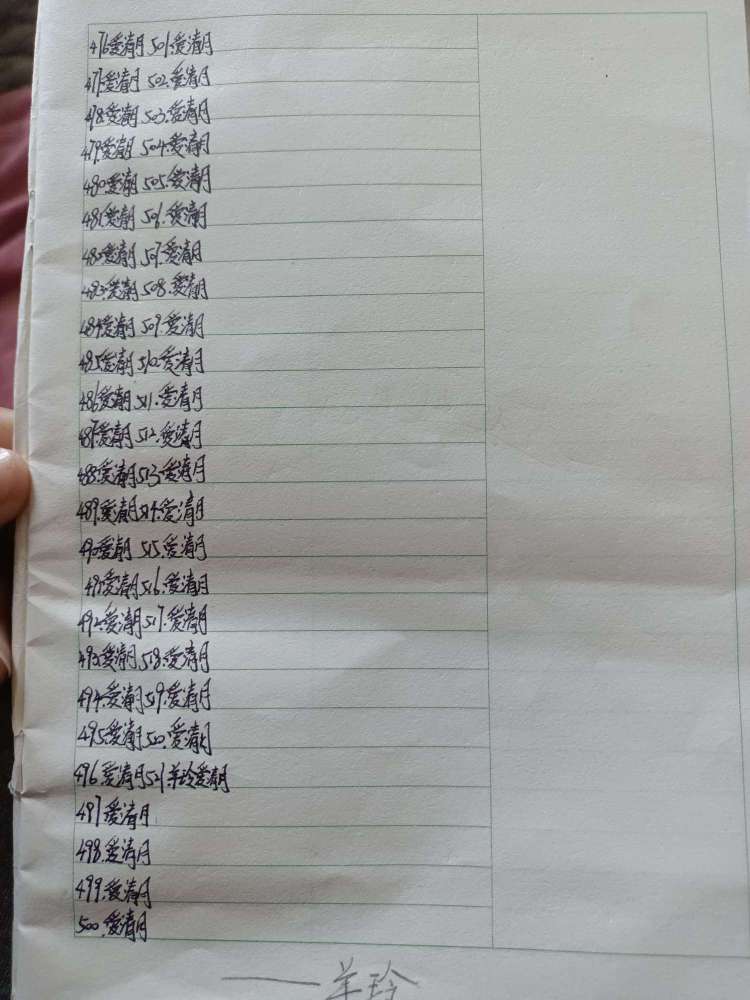 476爱清月 501.爱清月
477.爱清月 502.爱清月
478爱清月 503.爱清月
479爱清月 504.爱清月
480爱清月 505.爱清月
481爱清月 506.爱清月
482爱清月 507.爱清月
483.爱清月 508.爱清月
484爱清月 509.爱清月
485爱清月 510.爱清月
486爱清月 511.爱清月
487爱清月 512.爱清月
488.爱清月 513.爱清月
489.爱清月 514.爱清月
490爱清月 515.爱清月
491爱清月 516.爱清月
492.爱清月 517.爱清月
493.爱清月 518.爱清月
494.爱清月 519.爱清月
495.爱清月 520.爱清月
496.爱清月 521.羊玲爱清月
497.爱清月
498.爱清月
499.爱清月
500.爱清月
——羊玲